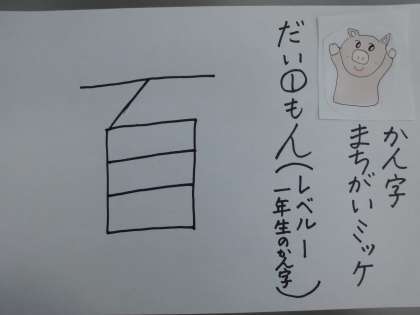 かん字
まちがいミッケ
だい①もん(レベル一
一年生のかん字)
𦣻